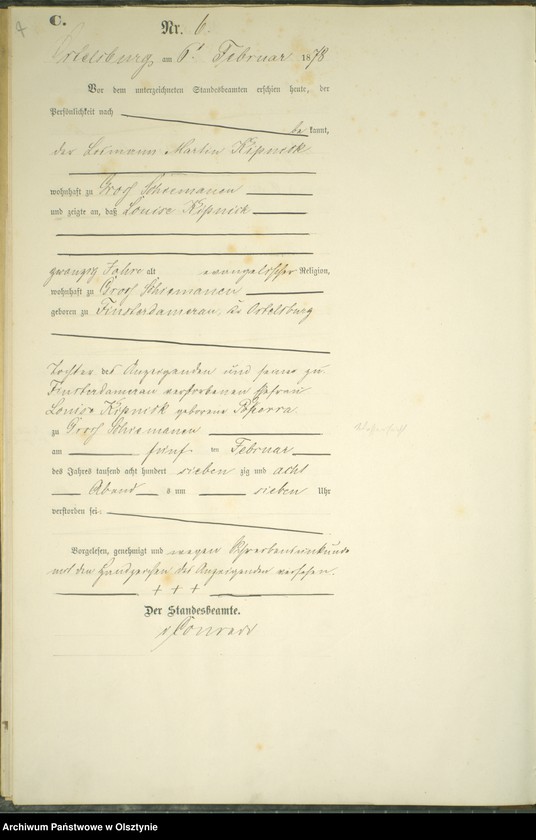 C.
Nr. 6.
Ortelsburg am 6t Februar 1878
Vor dem unterzeichneten Standesbeamten erschien heute, der
Persönlichkeit nach
be kannt,
der Losmann Martin Kipnick
wohnhaft zu Groß Schiemanen
und zeigte an, daß Louise Kipnick
zwanzig Jahre alt evangelischer Religion,
wohnhaft zu Groß Schiemanen
geboren zu Finsterdamerau, Ortelsburg
Tochter des Anzeigenden und seiner zu
Finsterdamerau verstorbenen Ehefrau
Louise Kipnick geborene
zu Groß Schiemanen
am fünf ten Februar
des Jahres tausend acht hundert sieben zig und acht
Abend s um sieben Uhr
verstorben sei
Vorgelesen, genehmigt und wegen Schreibensunkunde
mit den Handzeichen des Anzeigenden versehen.
+ + +
Der Standesbeamte.
v Conrad
Archiwum Państwowe w Olsztynie